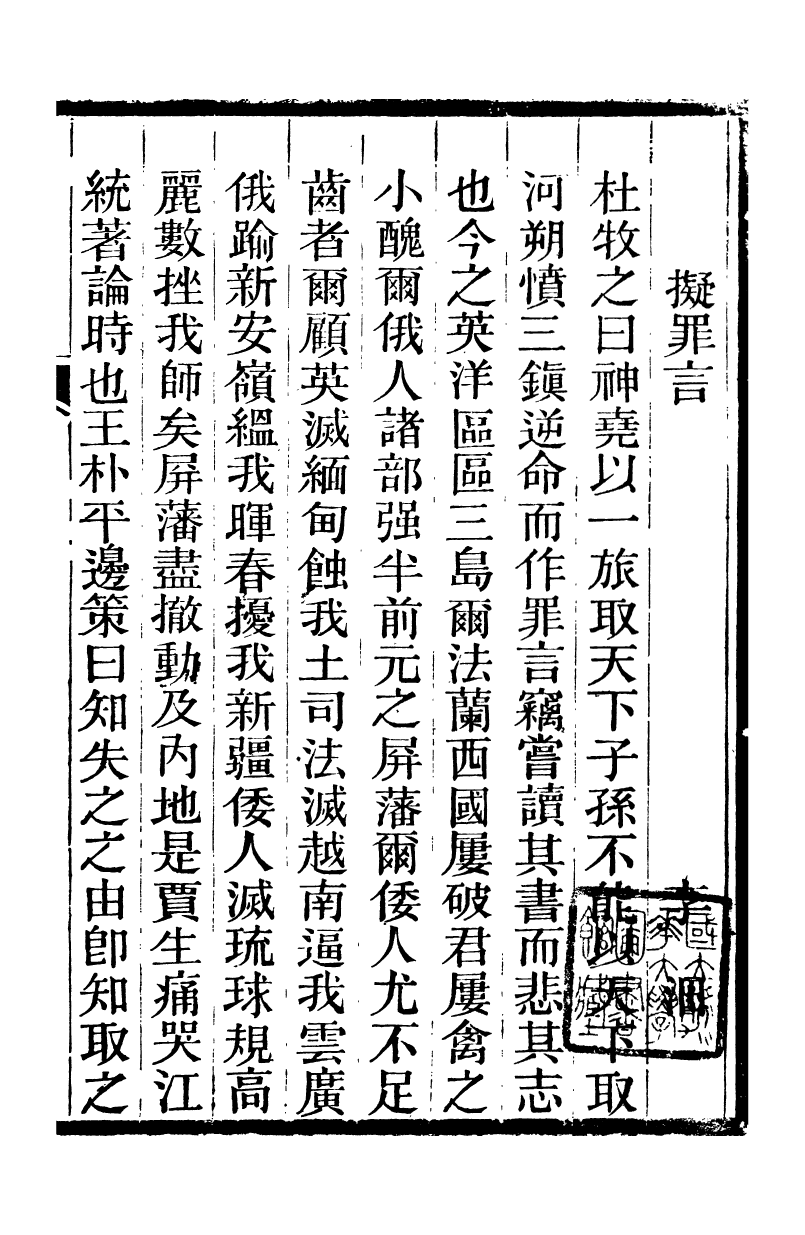 擬罪言
杜牧之曰神堯以一旅取天下子孫不能以天下取
河朔憤三鎮逆命而作罪言竊嘗讀其書而悲其志
也今之英洋區區三島爾法蘭西國屢破君屢禽之
小醜爾俄人諸部强半前元之屏藩爾倭人尤不足
齒者爾顧英滅緬甸蝕我土司法滅越南逼我雲廣
俄踰新安嶺縕我暉春擾我新疆倭人滅琉球規高
麗數挫我師矣屏藩盡撤動及內地是賈生痛哭江
統著論時也王朴平邊策曰知失之之由卽知取之